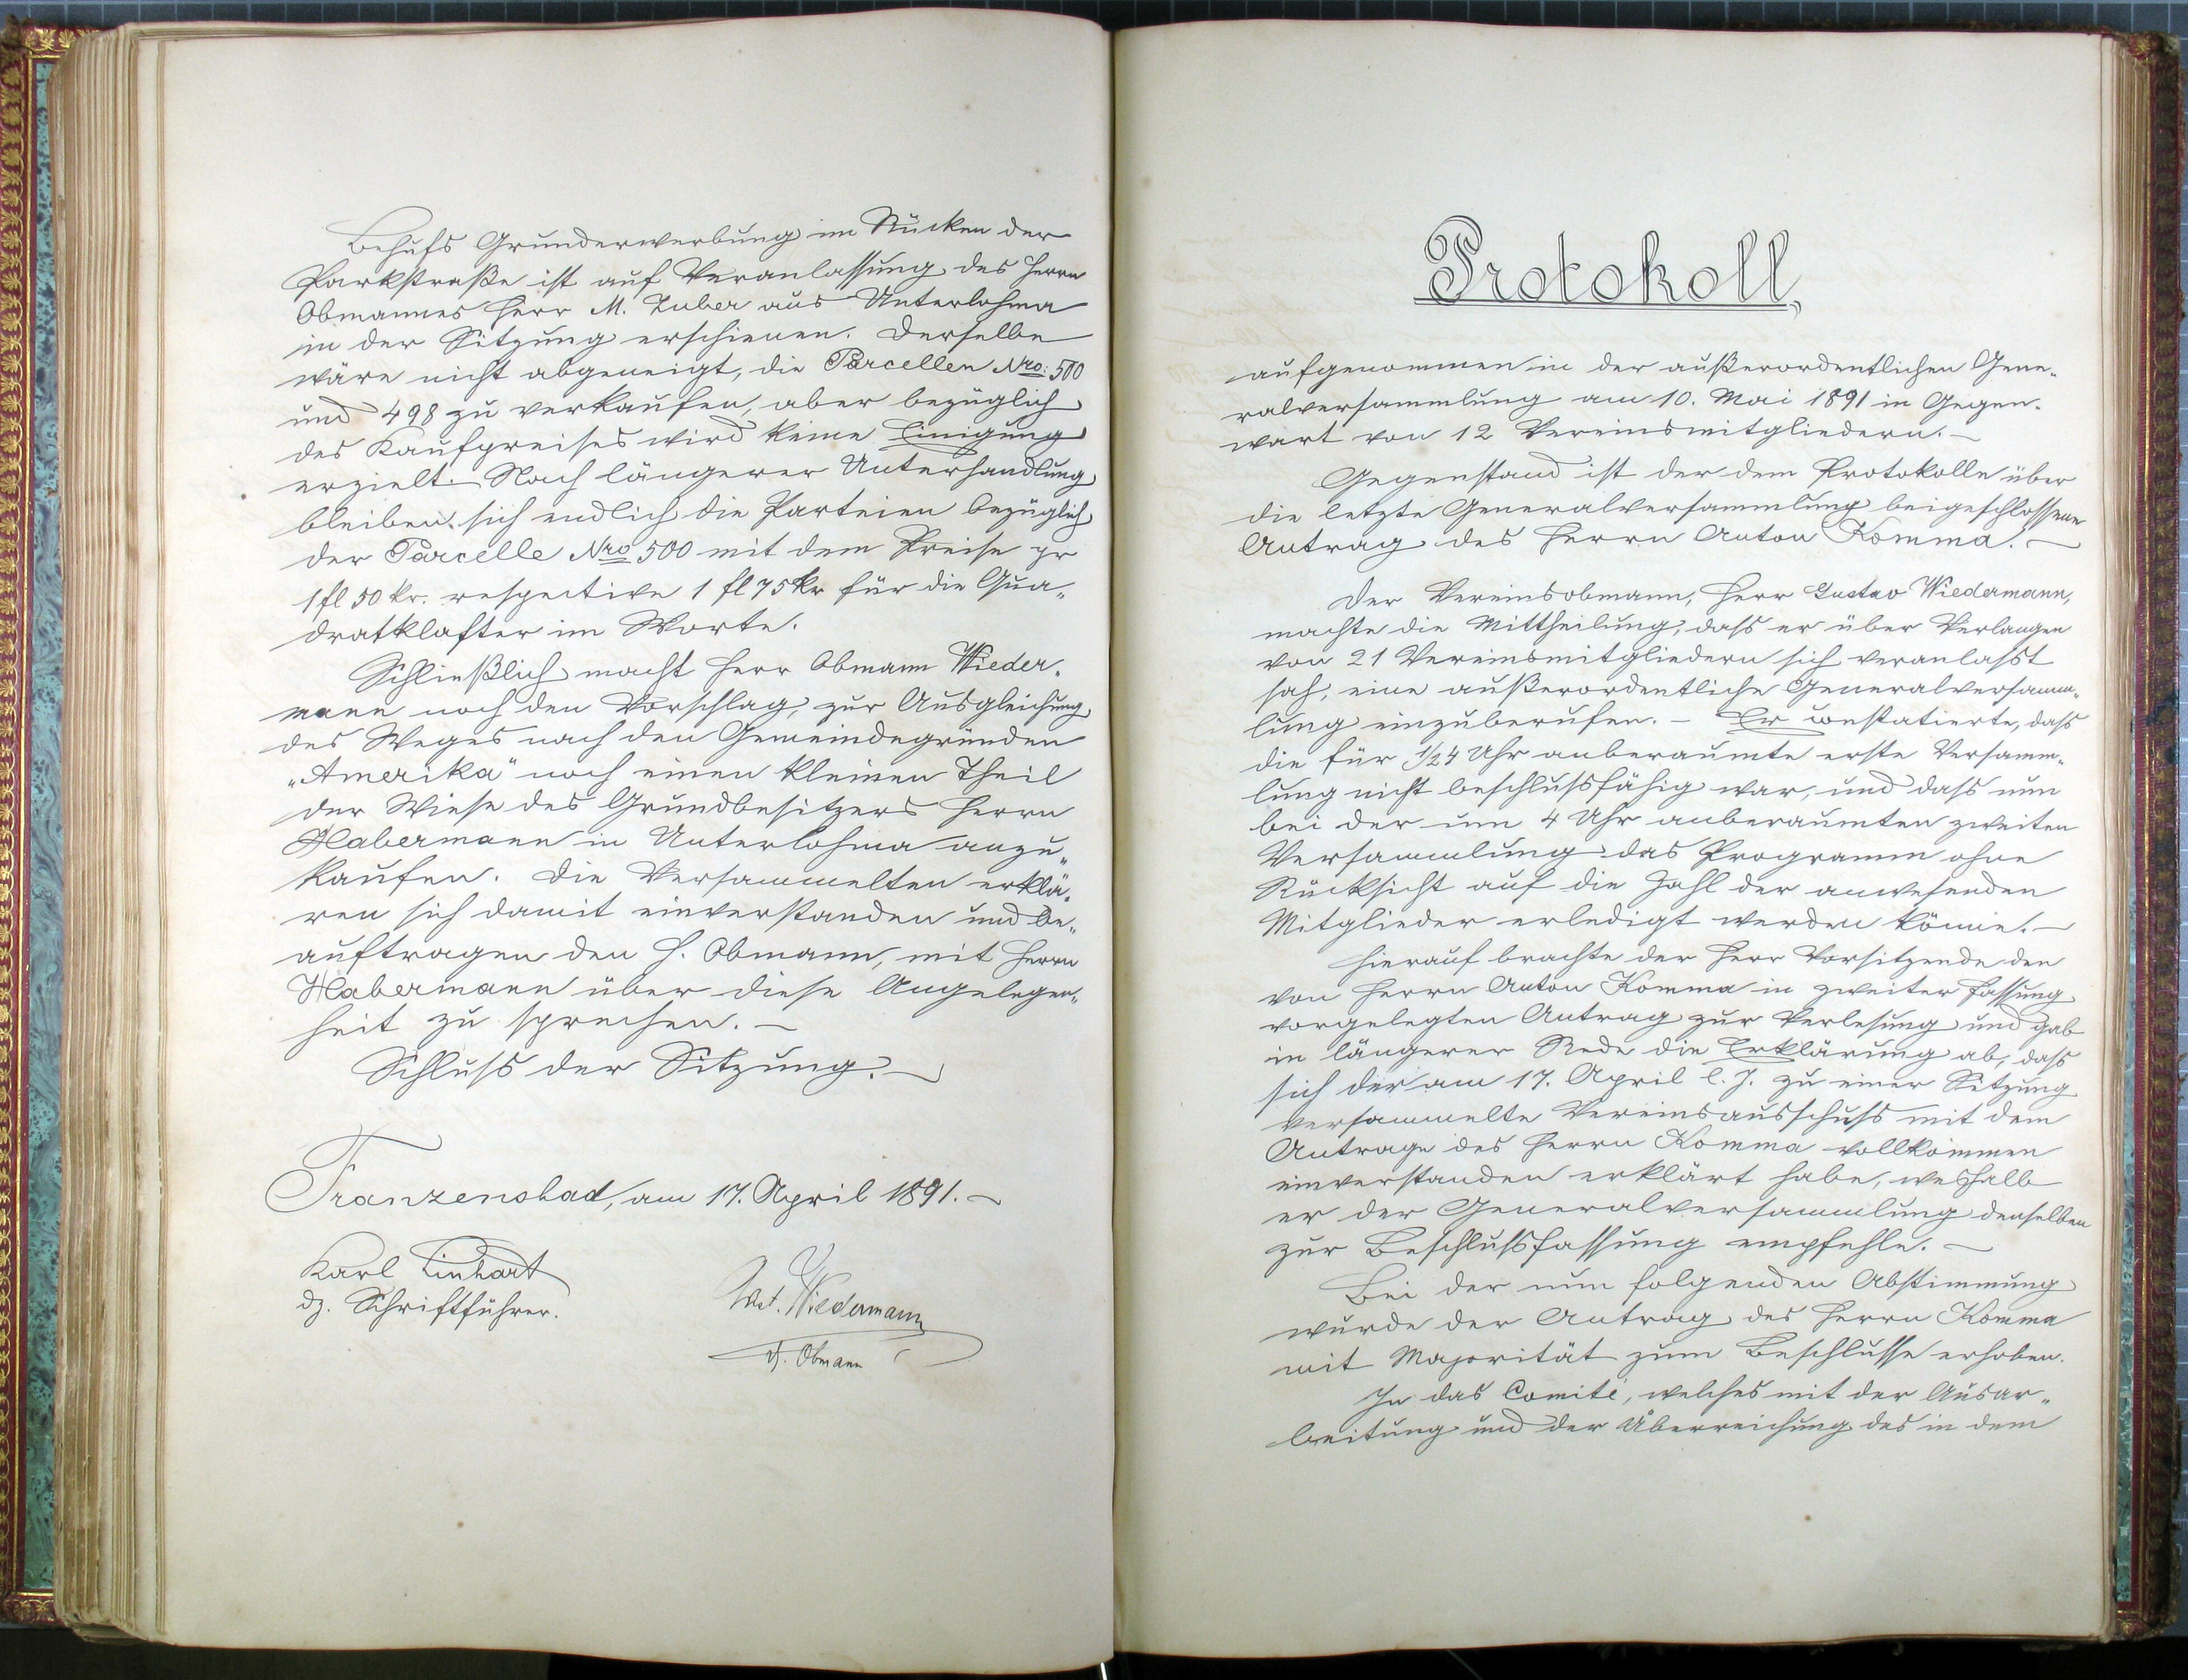 Behufs Grunderwerbung im Rücken der
Parkstraße ist auf Veranlassung des Herrn
Obmannes Herr M. Zuber aus Unterlohma
in der Sitzung erschienen. Derselbe
wäre nicht abgeneigt, die Parcellen Nro: 500
und 498 zu verkaufen, aber bezüglich
des Kaufpreises wird keine Einigung
erzielt. Nach längerer Unterhandlung
bleiben sich endlich die Parteien bezüglich
der Parcelle Nro 500 mit dem Preise pr
1 fl 50 kr. respective 1 fl 75 kr für die Qua„
dratklafter im Worte.
Schließlich macht Herr Obmann Wieder„
mann noch den Vorschlag, zur Ausgleichung
des Weges nach den Gemeindegründen
„Amerika" noch einen kleinen Theil
der Wiese des Grundbesitzers Herrn
Habermann in Unterlohma anzu„
kaufen. Die Versammelten erklä„
ren sich damit einverstanden und be„
auftragen den H. Obmann, mit Herrn
Habermann über diese Angelegen„
heit zu sprechen. –
Schluss der Sitzung. –
Franzensbad, am 17. April 1891. –
Karl Linhart
dz. Schriftführer.
Gust. Wiedermann
dz. Obmann
Protokoll,
aufgenommen in der außerordentlichen Gene„
ralversammlung am 10. Mai 1891 in Gegen„
wart von 12 Vereinsmitgliedern. –
Gegenstand ist der dem Protokolle über
die letzte Generalversammlung beigeschlossene
Antrag des Herrn Anton Komma. –
Der Vereinsobmann, Herr Gustav Wiedermann,
machte die Mittheilung, dass er über Verlangen
von 21 Vereinsmitgliedern sich veranlasst
sah, eine außerordentliche Generalversamm„
lung einzuberufen. – Er constatierte, dass
die für 1/24 Uhr anberaumte erste Versamm„
lung nicht beschlussfähig war, und dass nun
bei der um 4 Uhr anberaumten zweiten
Versammlung das Programm ohne
Rücksicht auf die Zahl der anwesenden
Mitglieder erledigt werden könne. –
Hierauf brachte der Herr Vorsitzende den
von Herrn Anton Komma in zweiter Fassung
vorgelegten Antrag zur Verlesung und gab
in längerer Rede die Erklärung ab, dass
sich der am 17. April l. J. zu einer Sitzung
versammelte Vereinsausschuss mit dem
Antrage des Herrn Komma vollkommen
einverstanden erklärt habe, weshalb
er der Generalversammlung denselben
zur Beschlussfassung empfehle. –
Bei der nun folgenden Abstimmung
wurde der Antrag des Herrn Komma
mit Majorität zum Beschlusse erhoben.
In das Comité, welches mit der Ausar„
beitung und der Überreichung des in dem